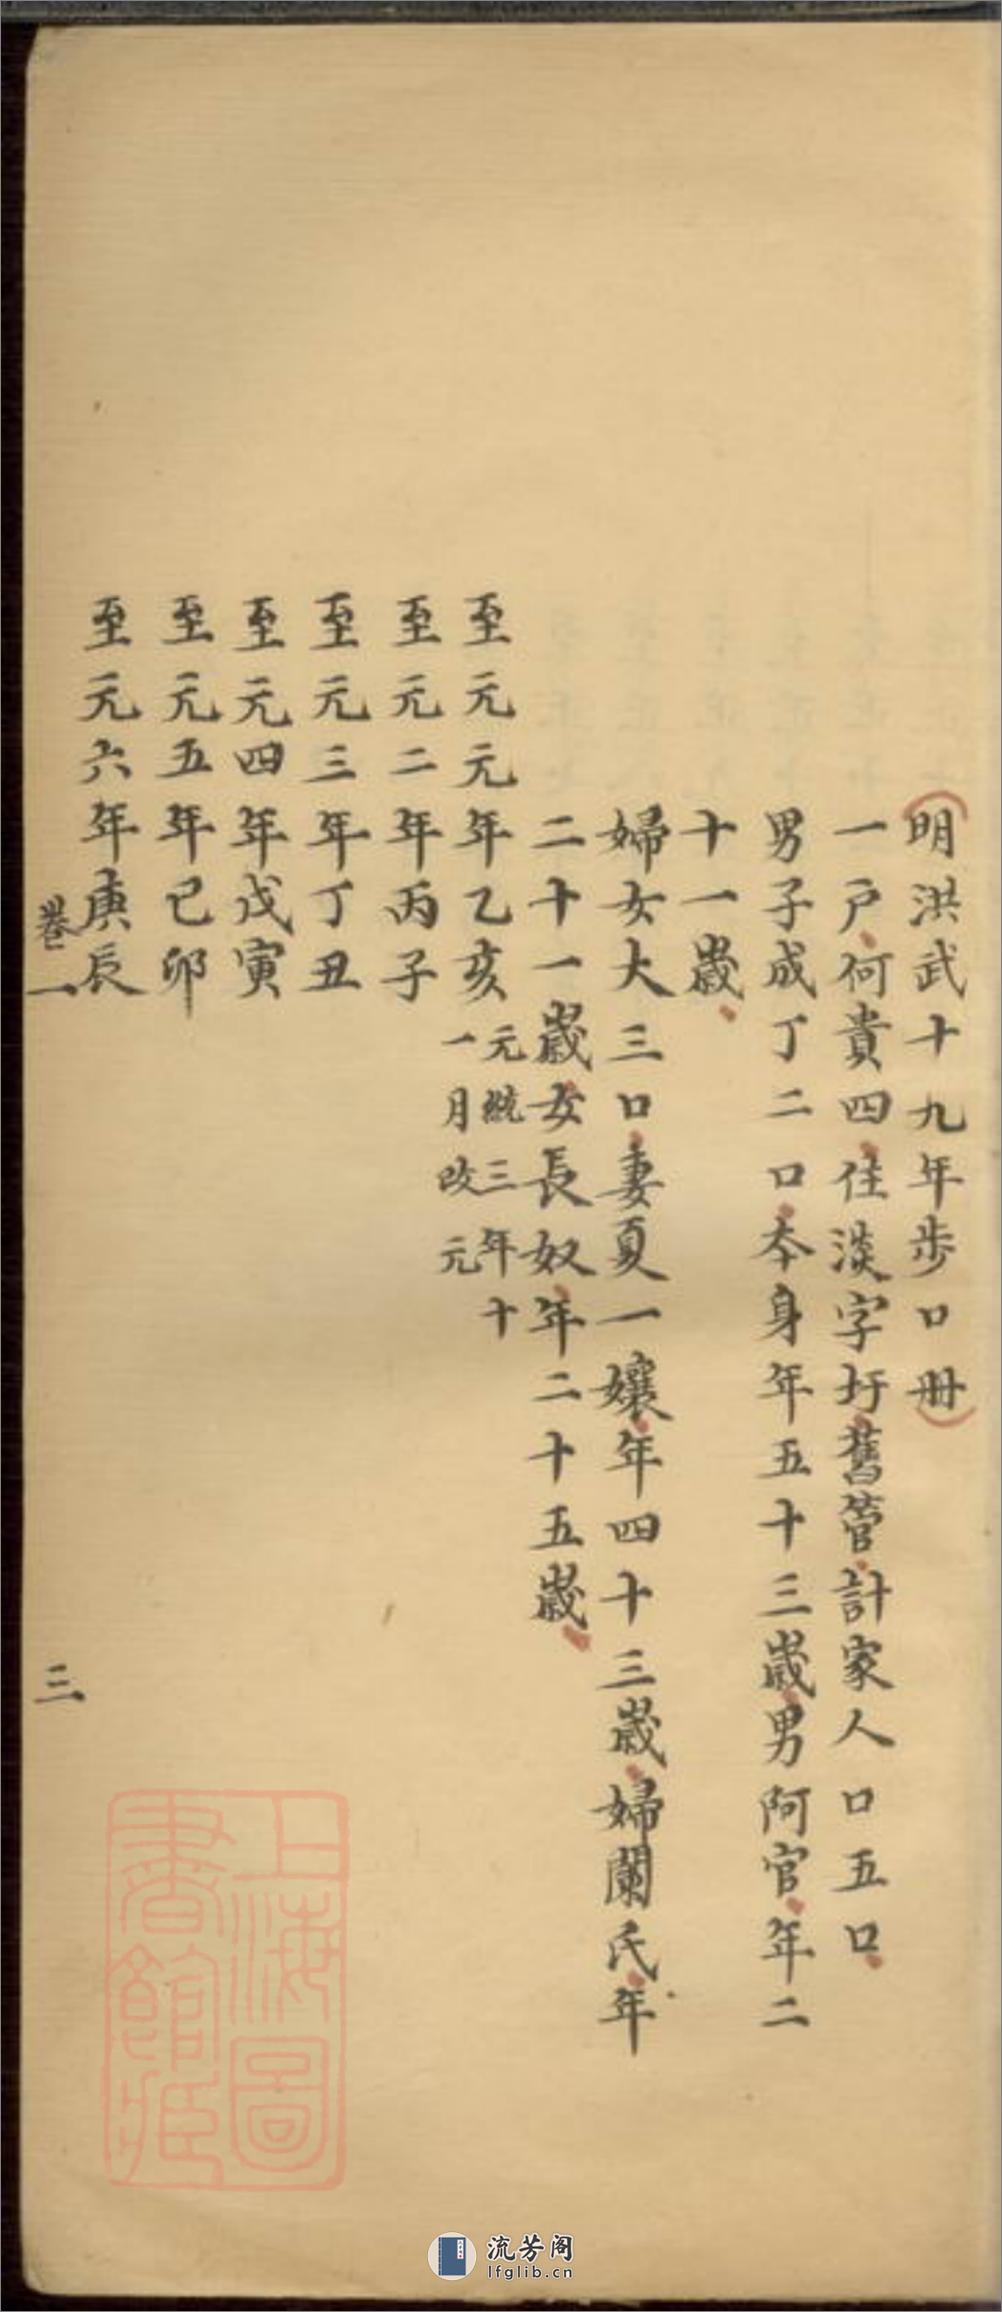 明洪武十九年步口冊
一戶何貴四住淡字圩舊管計家人口五口
男子成丁二口本身年五十三歲男阿官年二
十一歲
婦女大三口妻夏一孃年四十三歲婦闌氏年
二十一歲女長奴年二十五歲
至元元年乙亥元統三年十
一月改元
至元二年丙子
至元三年丁丑
至元四年戊寅
至元五年己卯
至元六年庚辰
卷一
三
上海圖
書館藏
流芳阁
lfglib.cn